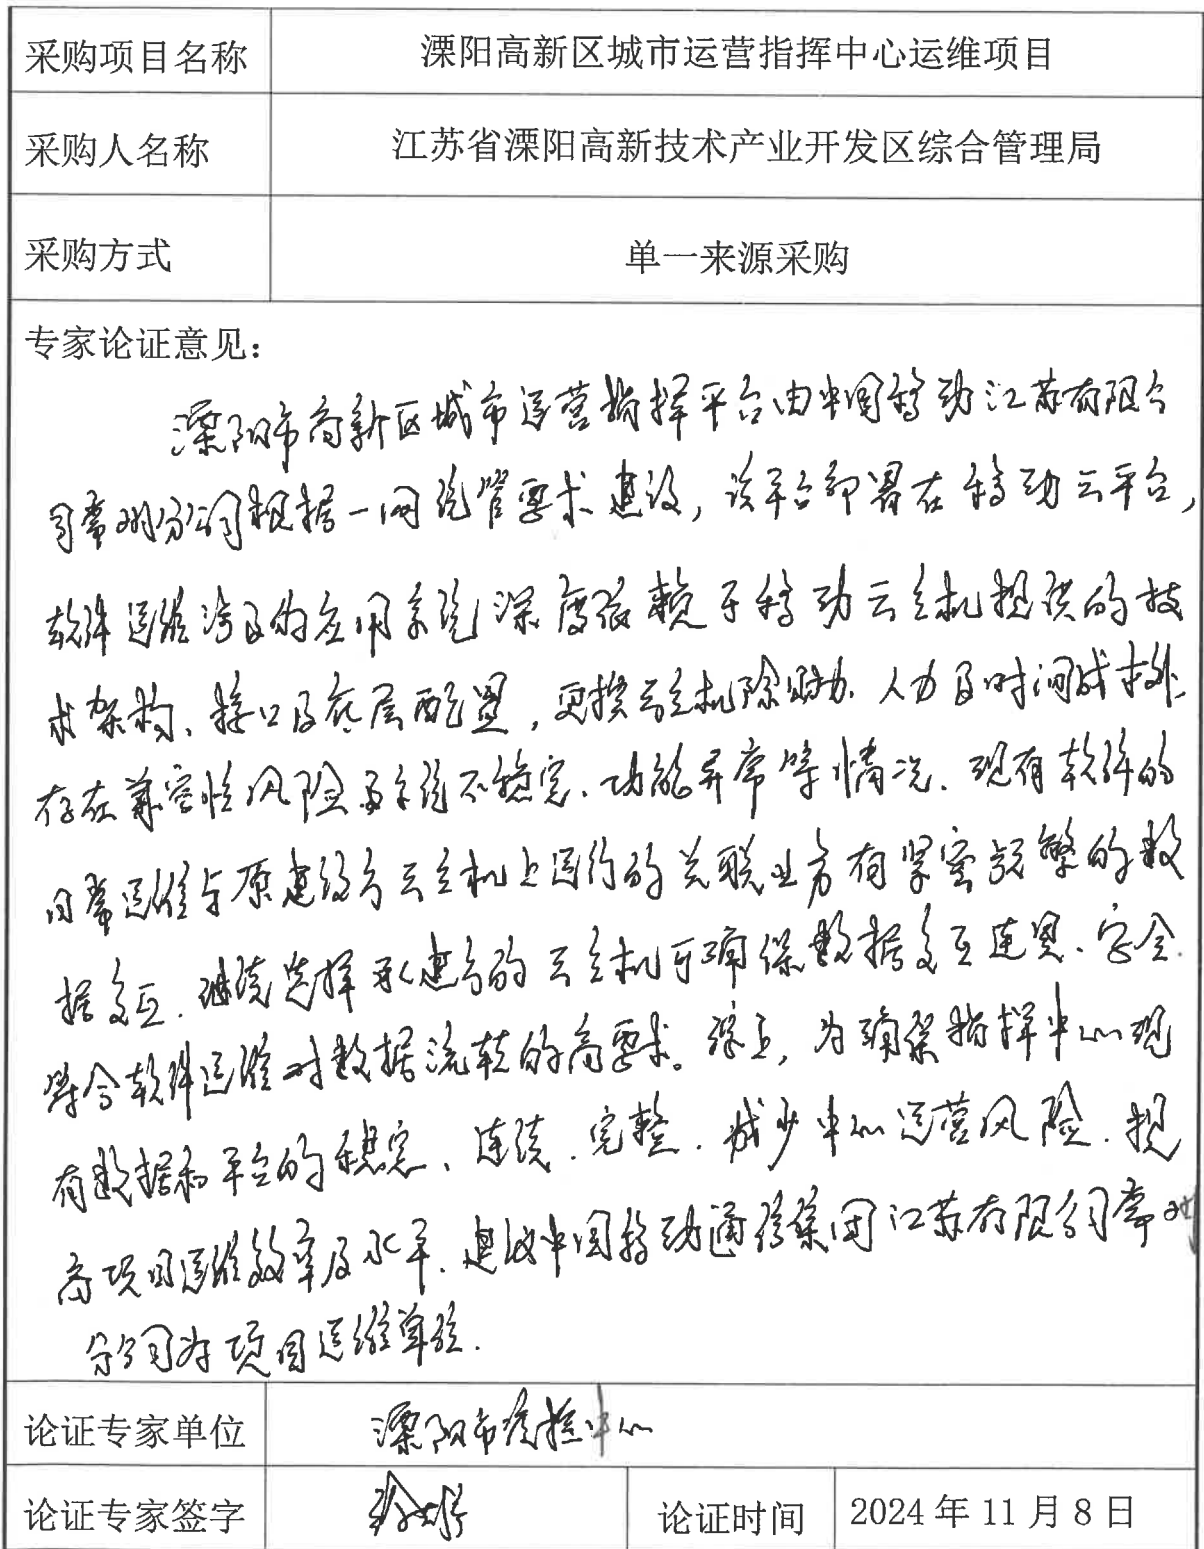 采购项目名称 溧阳高新区城市运营指挥中心运维项目
采购人名称 江苏省溧阳高新技术产业开发区综合管理局
采购方式 单一来源采购
专家论证意见：
溧阳市高新区城市运营指挥平台由中国移动江苏有限公
司常州分公司根据一网统管要求建设，该平台部署在移动云平台，
软件运维涉及的应用系统深度依赖于移动云主机提供的技
术架构、接口及底层配置，更换云主机除财力、人力及时间成本外，
存在兼容性风险及系统不稳定、功能异常等情况．现有软件的
日常运维与原建设方云主机上运行的关联业务有紧密频繁的数
据交互．继续选择承建方的云主机可确保数据交互连贯、安全．
符合软件运维对数据流转的高要求。综上，为确保指挥中心现
有数据和平台的稳定、连续．完整．减少中心运营风险．提
高项目运维效率及水平．建议中国移动通信集团江苏有限公司常州
分公司为项目运维单位．
论证专家单位 溧阳市疾控中心
论证专家签字 论证时间 2024年11月8日